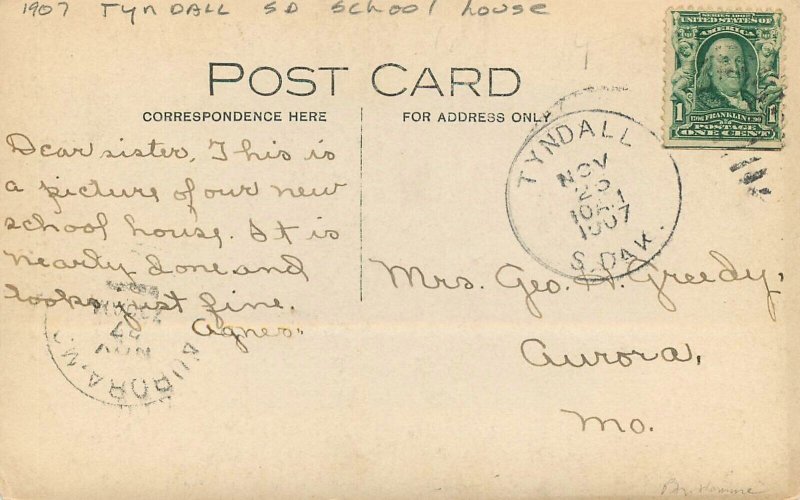 1907 Tyndall SD School house
POST CARD
CORRESPONDENCE HERE
FOR ADDRESS ONLY
SERIES 1902
UNITED STATES OF
AMERICA
1 FRANKLIN 1
POSTAGE
ONE CENT
TYNDALL
NOV
1907
S.DAK.
Dear sister, This is
a picture of our new
school house. It is
nearly done and
looks just fine.
Agnes.
Mrs. Geo. Greedy,
Aurora,
Mo.
AURORA, MO.
NOV